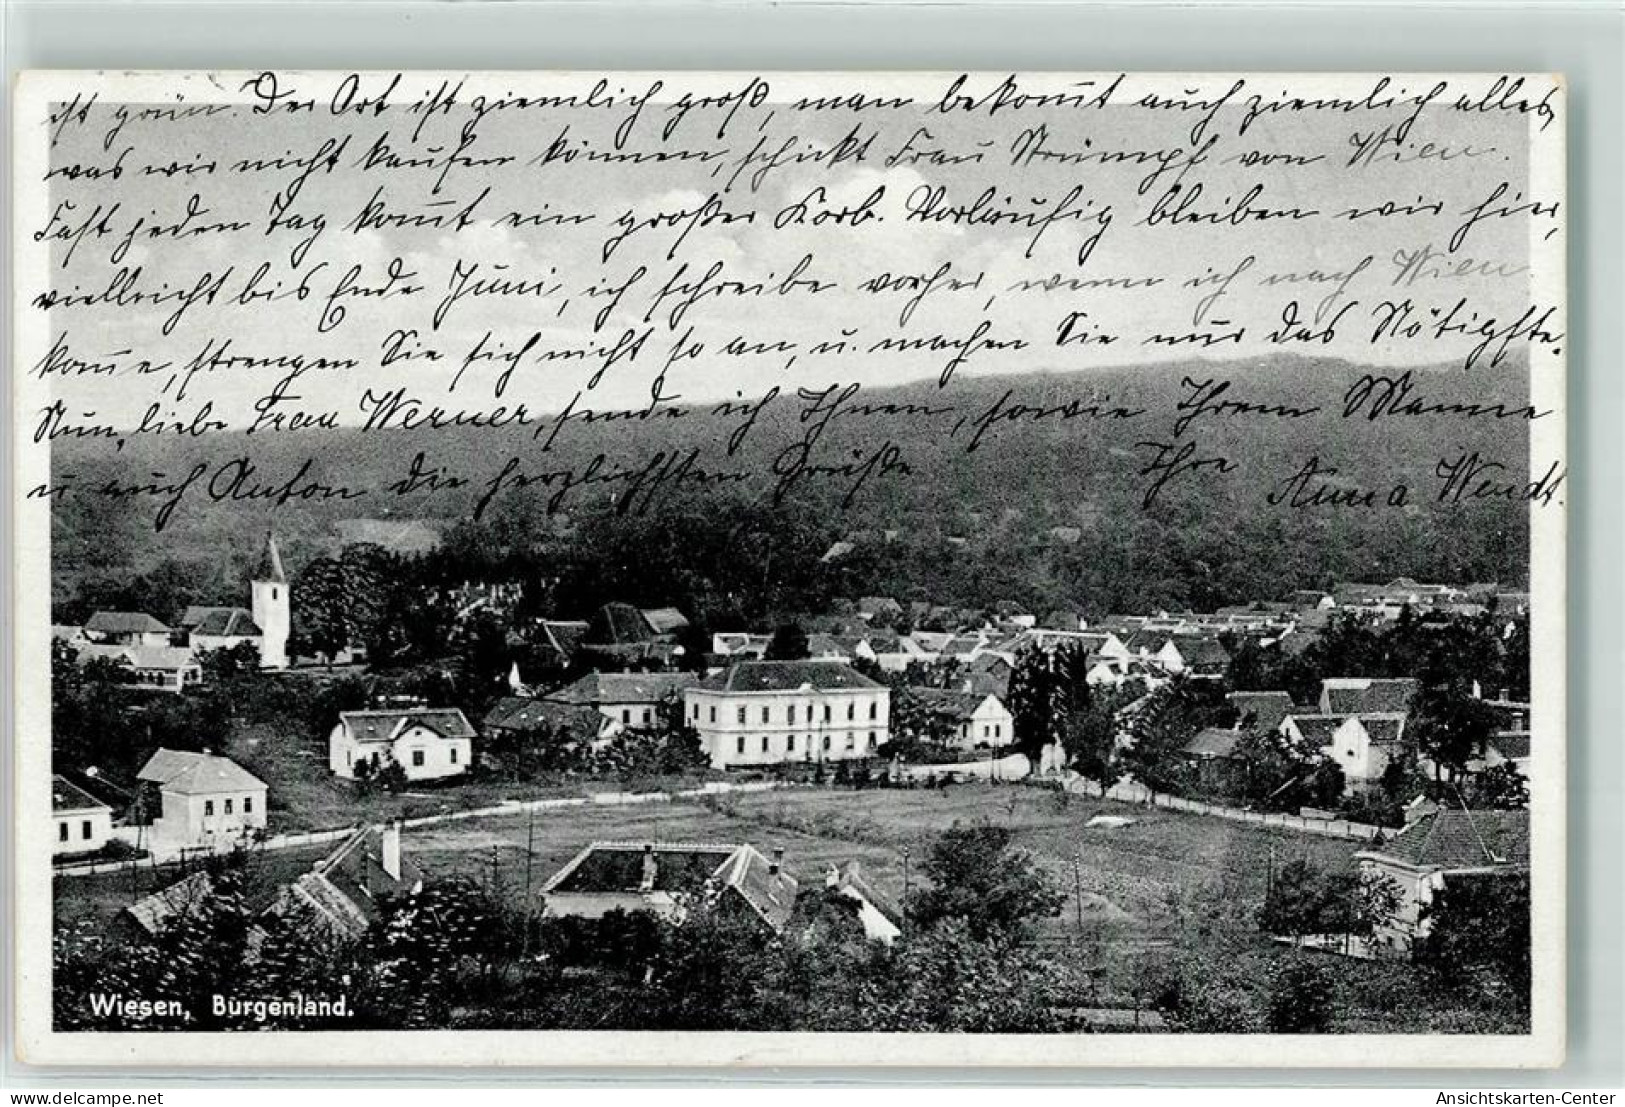 ist grün. Der Ort ist ziemlich groß, man bekom̄t auch ziemlich alles,
was wir nicht kaufen können, schickt Frau Strümpf von Wien.
Fast jeden Tag kom̄t ein großer Korb. Vorläufig bleiben wir hier,
vielleicht bis Ende Juni, ich schreibe vorher, wenn ich nach Wien
kom̄e, strengen Sie sich nicht so an, u. machen Sie nur das Nötigste.
Nun, liebe Frau Werner, sende ich Ihnen, sowie Ihrem Manne
u. auch Anton die herzlichsten Grüße Ihre Anna Wendt.
Wiesen, Burgenland.
www.delcampe.net Ansichtskarten-Center